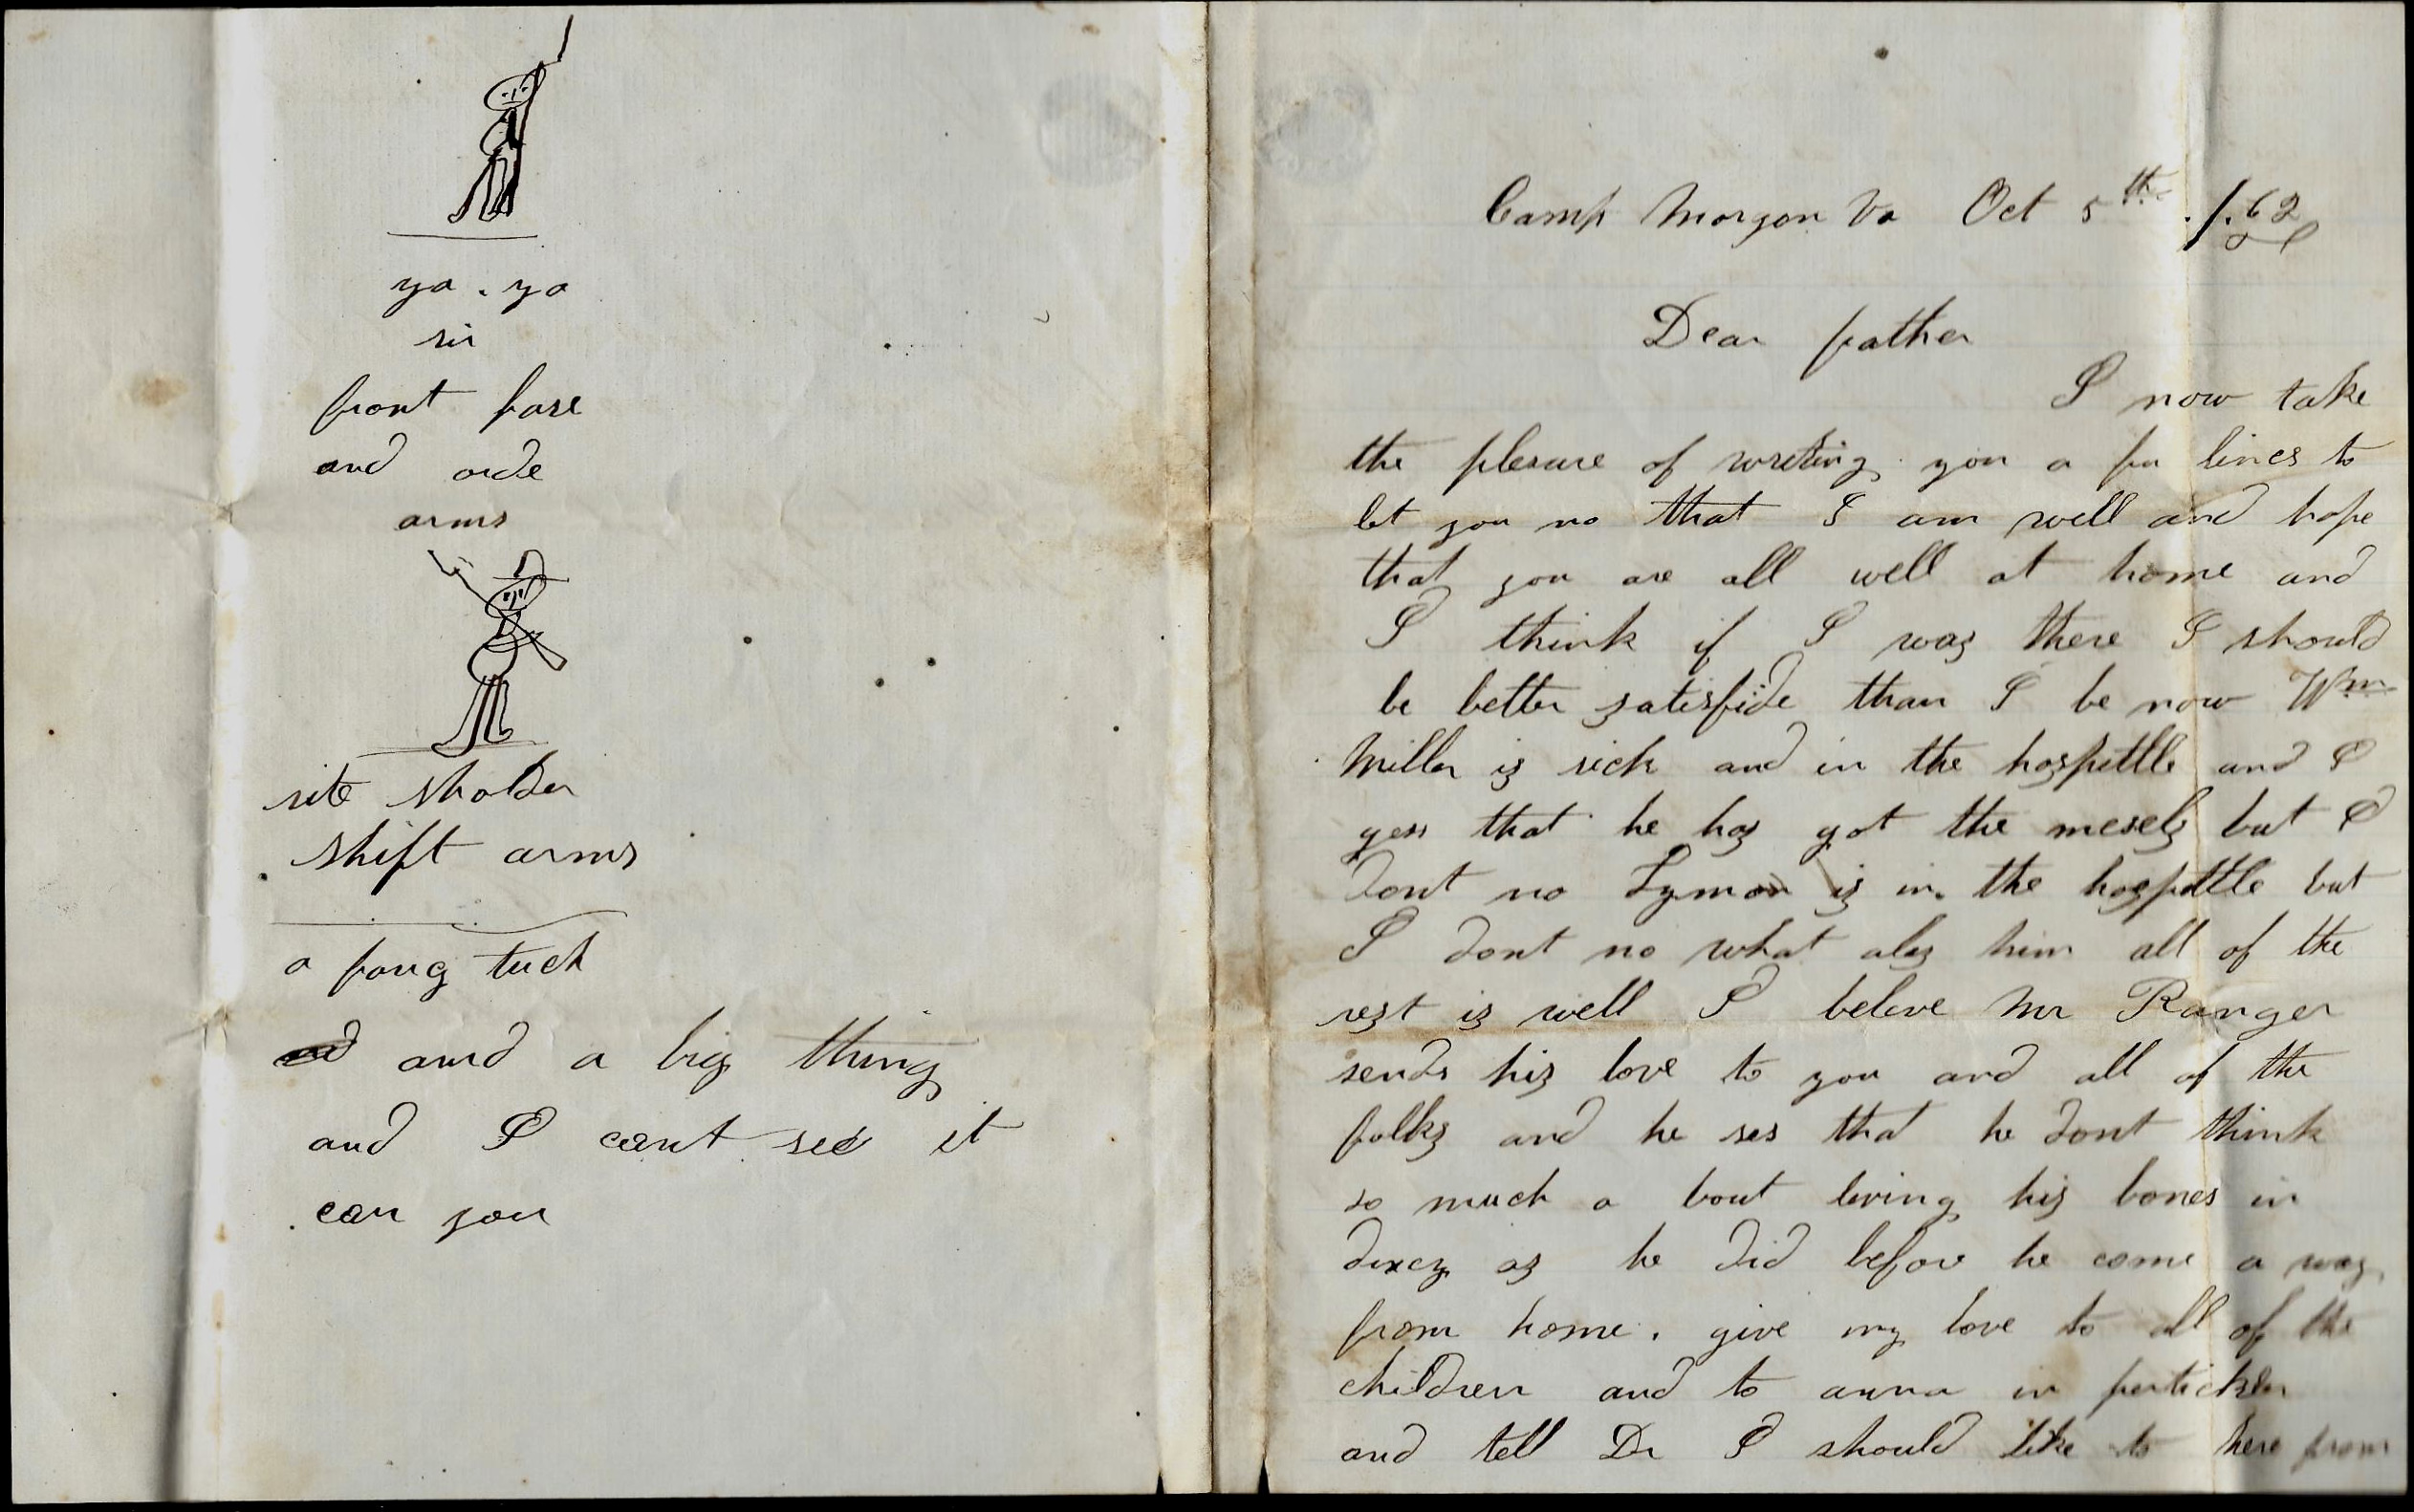 ya . ya
sir
front fase
and orde
arms
rite sholder
shift arms
a fong tuck
and a big thing
and I cant see it
can you
Camp Morgan Va Oct 5th /.62
Dear father
I now take
the plesure of writing you a fu lines to
let you no that I am well and hope
that you are all well at home and
I think if I was there I should
be better satisfide than I be now Wm
Miller is sick and in the hospittle and I
gess that he has got the mesels but I
dont no Lyman is in the hospittle but
I dont no what ales him all of the
rest is well I beleve Mr Ranger
sends his love to you and all of the
folks and he ses that he dont think
so much a bout leving his bones in
dixcy as he did before he come a way
from home. give my love to all of the
children and to anna in pertickler
and tell Dr I should like to here from